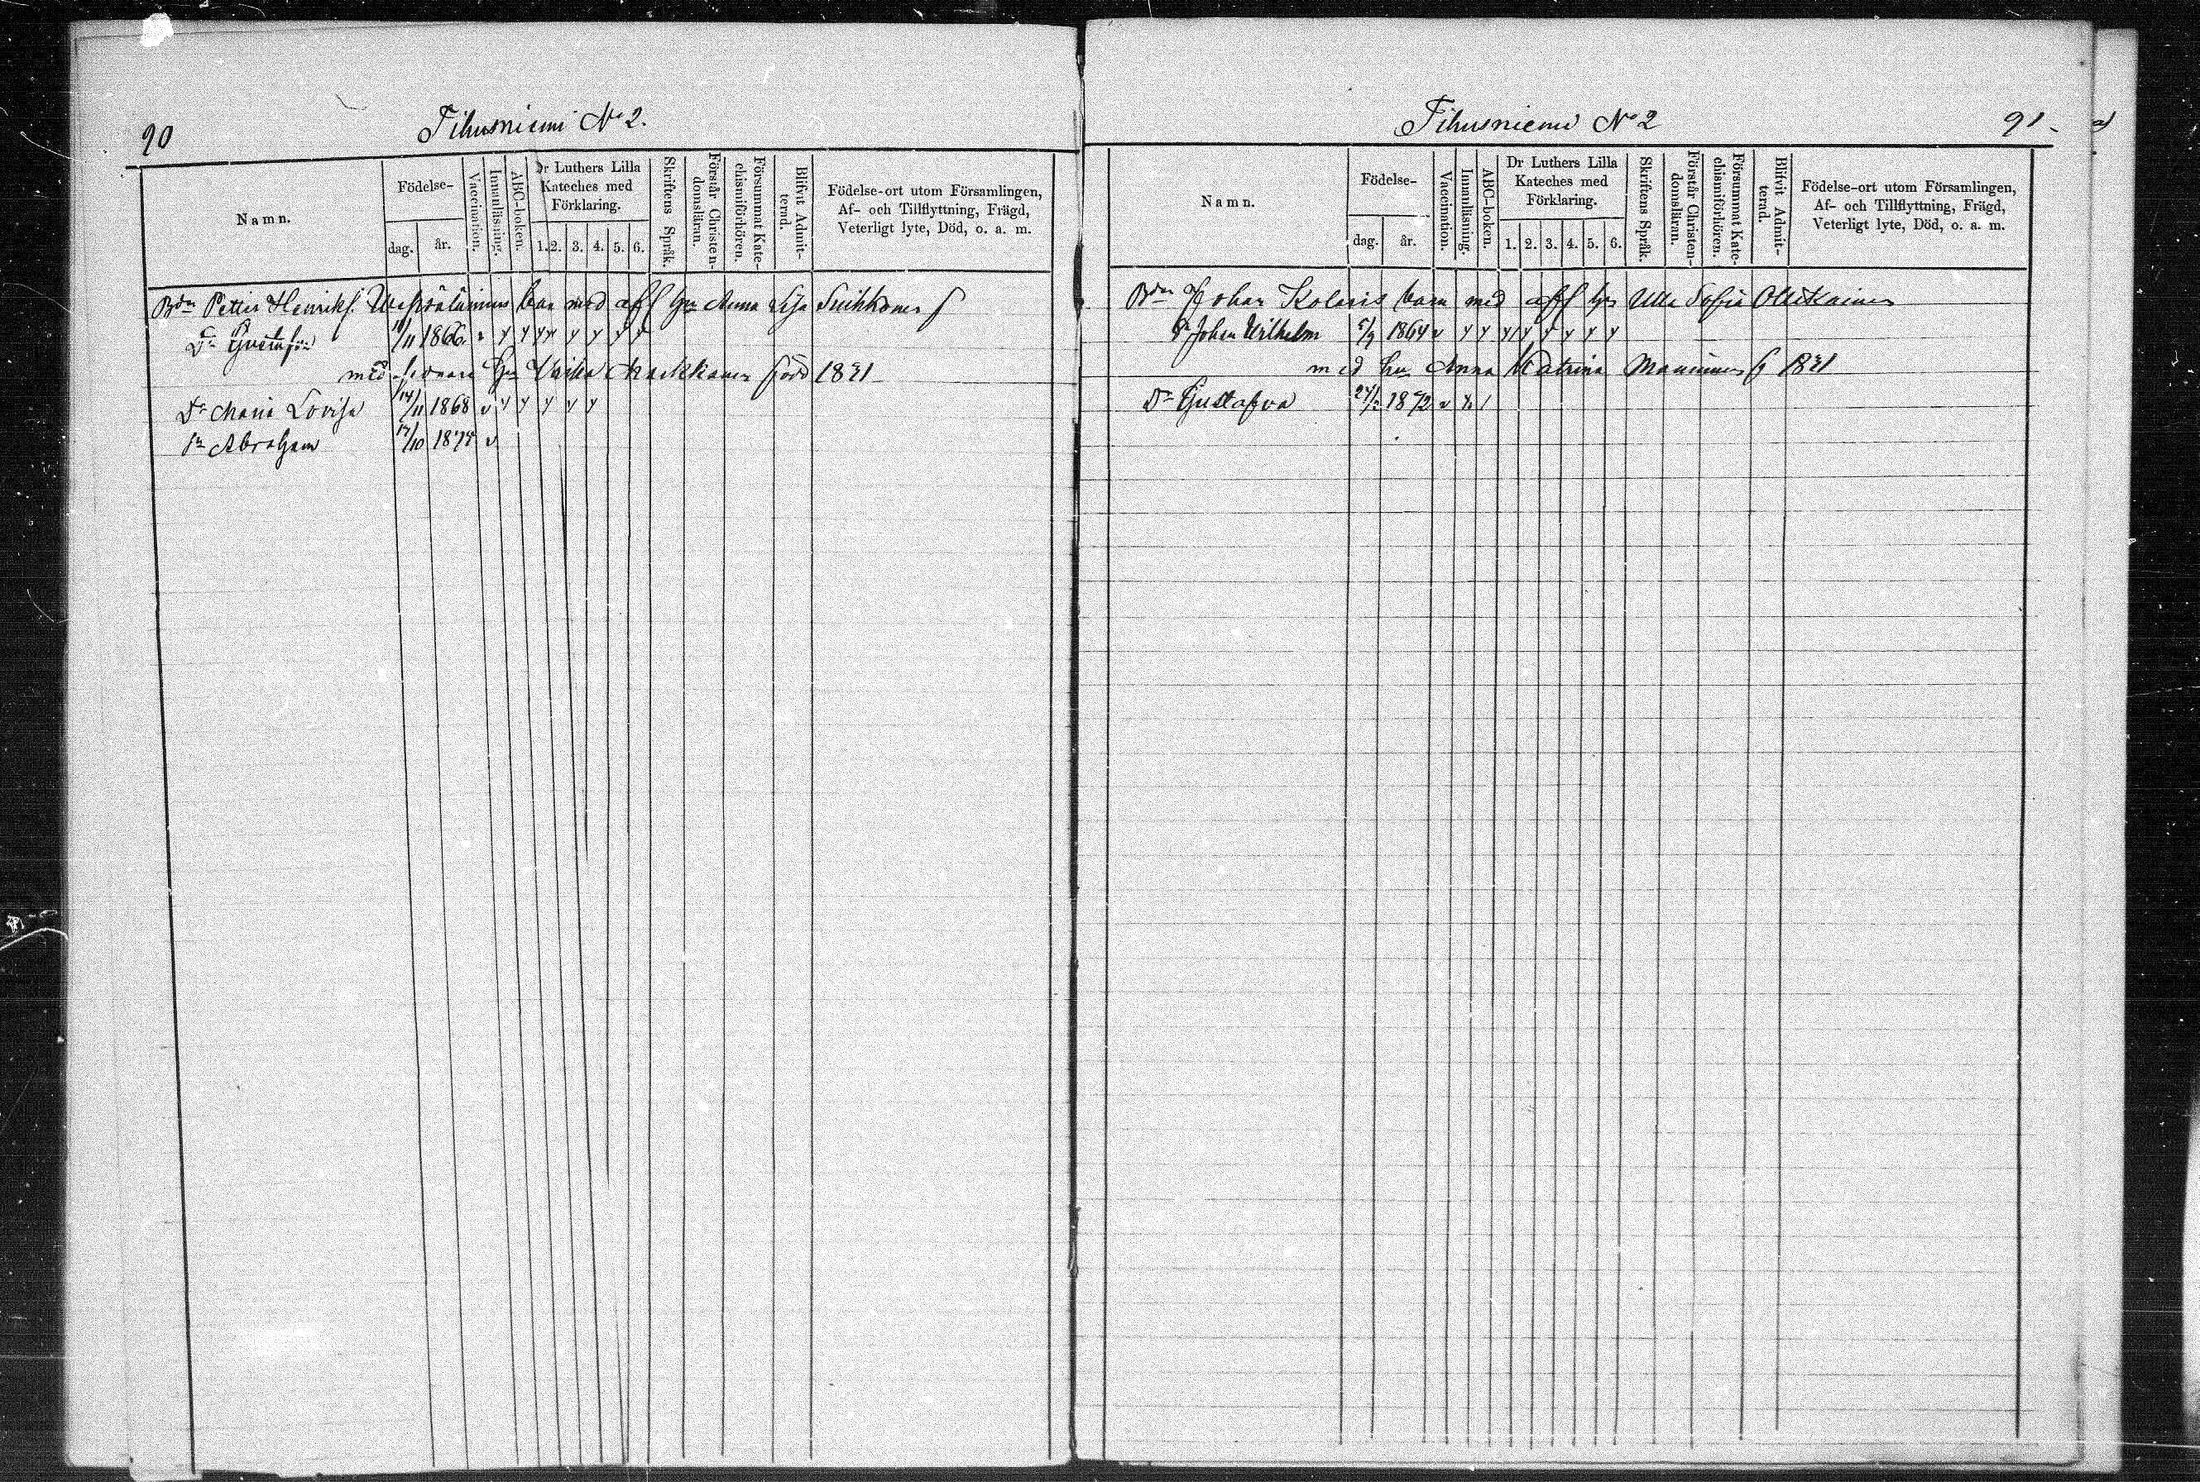 90
Tihusniemi No 2.
Namn.
Födelse-
dag.
år.
Vaccination.
Innanläsning.
ABC-boken.
Dr Luthers Lilla
Kateches med
Förklaring.
1. 2. 3. 4. 5. 6.
Skriftens Språk.
Förstår Christen-
domsläran.
Försummat Kate-
chismiförhören.
Blifvit Admit-
terad.
Födelse-ort utom Församlingen,
Af- och Tillflyttning, Frägd,
Veterligt lyte, Död, o. a. m.
Bdn Petter Henriks. barn med afl hu Anna Lisa Suihkonen
Dr Gustafva 11 1866 v y y y y y y y y
med hu Markkanen född 1831
Dr Maria Lovisa 14/11 1868 v y y y y y
Sn Abraham 17/10 1874 v
Tihusniemi No 2
91
Namn.
Födelse-
dag.
år.
Vaccination.
Innanläsning.
ABC-boken.
Dr Luthers Lilla
Kateches med
Förklaring.
1. 2. 3. 4. 5. 6.
Skriftens Språk.
Förstår Christen-
domsläran.
Försummat Kate-
chismiförhören.
Blifvit Admit-
terad.
Födelse-ort utom Församlingen,
Af- och Tillflyttning, Frägd,
Veterligt lyte, Död, o. a. m.
Bdn Johan Kolaris barn med afl hu Ulla Sofia Ollikainen
Sn Johan Wilhelm 5/9 1864 v y y y y y y y y
med hu Anna Katrina Manninen f 1831
Dr Gustafva 1872 v